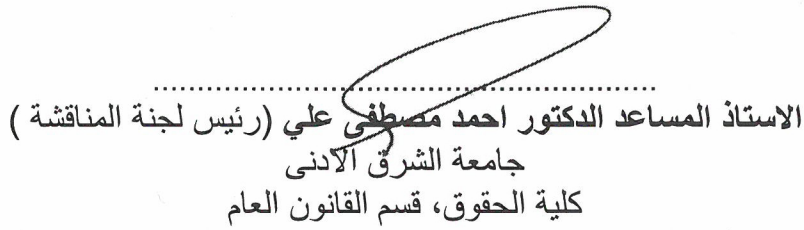 ................................................................
الاستاذ المساعد الدكتور احمد مصطفى علي (رئيس لجنة المناقشة )
جامعة الشرق الادنى
كلية الحقوق، قسم القانون العام